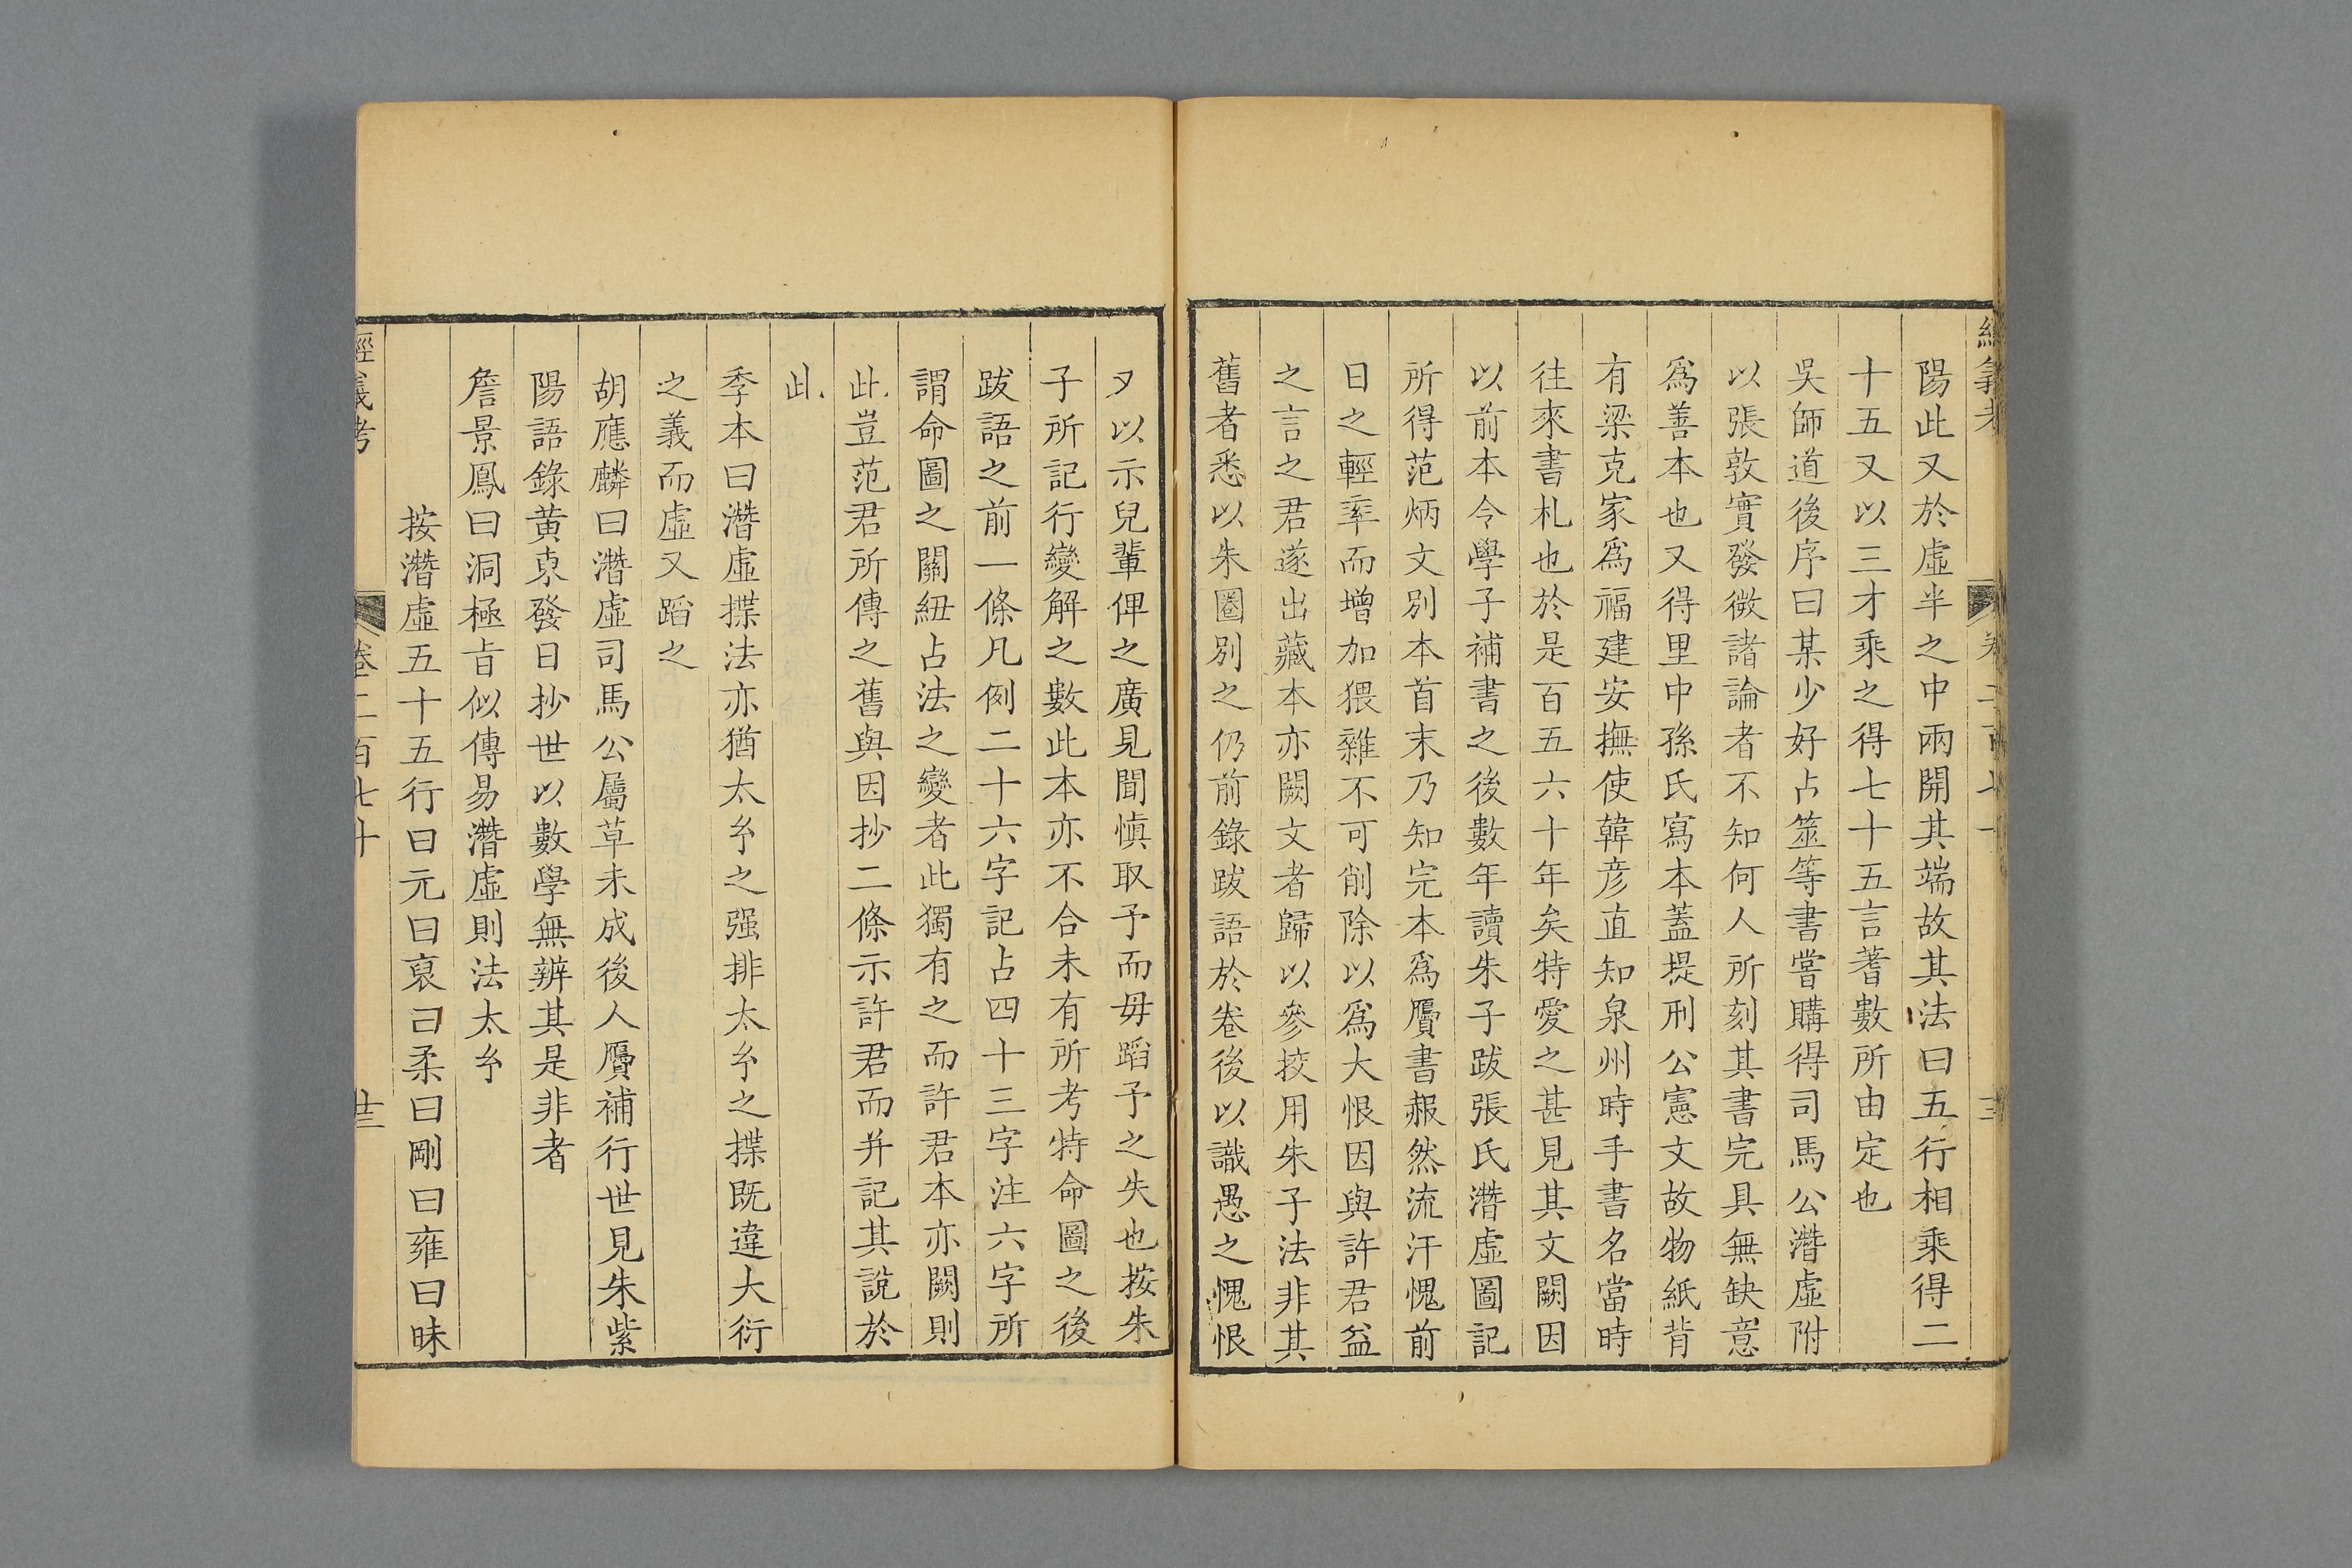 陽此又於虛半之中兩開其端故其法曰五行相乘得二
十五又以三才乘之得七十五言蓍數所由定也
吳師道後序曰某少好占筮等書嘗購得司馬公潛虛附
以張敦實發微諸論者不知何人所刻其書完具無缺意
爲善本也又得里中孫氏寫本蓋堤刑公憲文故物紙背
有梁克家爲福建安撫使韓彦直知泉州時手書名當時
往來書札也於是百五六十年矣特愛之甚見其文闕因
以前本令學子補書之後數年讀朱子跋張氏潛虛圖記
所得范炳文別本首末乃知完本爲贋書赧然流汗愧前
日之輕率而增加猥雜不可削除以爲大恨因與許君益
之言之君遂出藏本亦闕文者歸以參挍用朱子法非其
舊者悉以朱圈別之仍前錄跋語於卷後以識愚之愧恨
又以示兒輩俾之廣見聞慎取予而毋蹈予之失也按朱
子所記行變解之數此本亦不合未有所考特命圖之後
跋語之前一條凡例二十六字記占四十三字注六字所
謂命圖之關紐占法之變者此獨有之而許君本亦闕則
此豈范君所傳之舊與因抄二條示許君而并記其說於
此
季本曰潛虛揲法亦猶太𤣥之强排太𤣥之揲既違大衍
之義而虛又蹈之
胡應麟曰潛虛司馬公屬草未成後人贋補行世見朱紫
陽語錄黄東發日抄世以數學無辨其是非者
詹景鳳曰洞極旨似傳易潛虛則法太𤣥
按潛虛五十五行曰元曰裒曰柔曰剛曰雍曰昧
經義考
卷二百七十